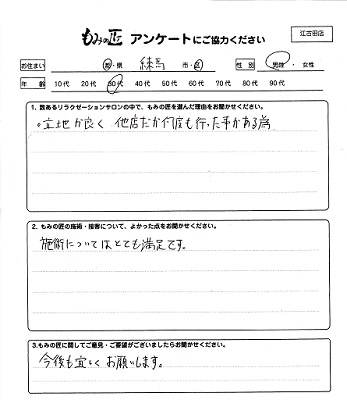 もみの匠 アンケートにご協力ください
江古田店
お住まい 都・県 練馬 市・区 性別 男性・女性
年齢 10代 20代 30代 40代 50代 60代 70代 80代 90代
1. 数あるリラクゼーションサロンの中で、もみの匠を選んだ理由をお聞かせください。
。立地が良く 他店だが何度も行った事がある為
2. もみの匠の施術・接客について、よかった点をお聞かせください。
施術についてはとても満足です。
3.もみの匠に関してご意見・ご要望がございましたらお聞かせください。
今後も宜しくお願いします。